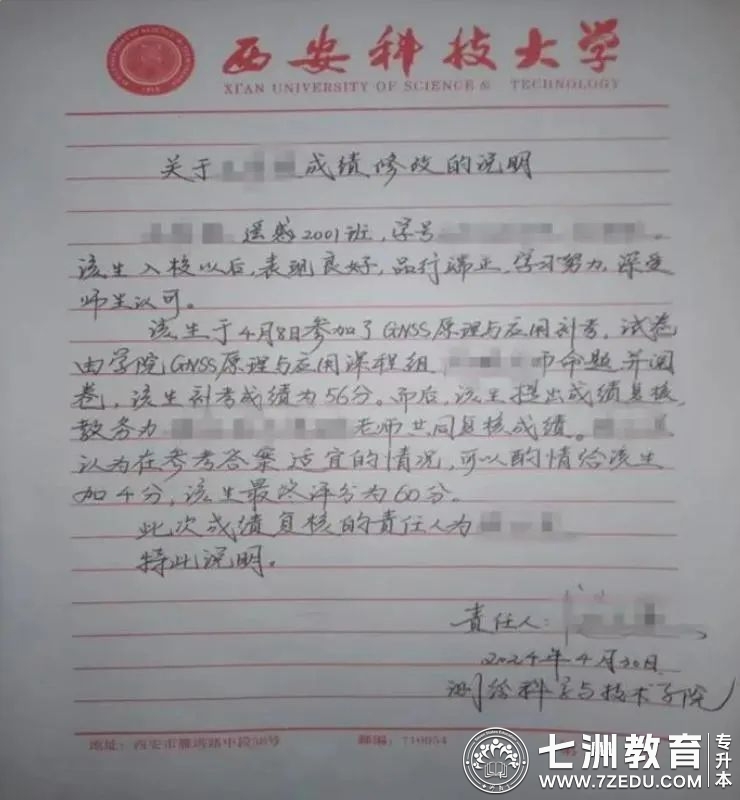 西安科技大学
XI'AN UNIVERSITY OF SCIENCE & TECHNOLOGY
关于 成绩修改的说明
遥感2001班,学号
该生入校以后,表现良好,品行端正,学习努力,深受
师生认可。
该生于4月8日参加了GNSS原理与应用补考。试卷
由学院GNSS原理与应用课程组 师命题并阅
卷,该生补考成绩为56分。而后,该生提出成绩复核,
教务为 老师共同复核成绩。
认为在参考答案适宜的情况,可以酌情给该生
加4分,该生最终评分为60分。
此次成绩复核的责任人为
特此说明。
责任人:
2024年4月30日
测绘科学与技术学院
地址:西安市雁塔路中段58号 邮编:710054
七洲教育
专升本
WWW.7ZEDU.COM